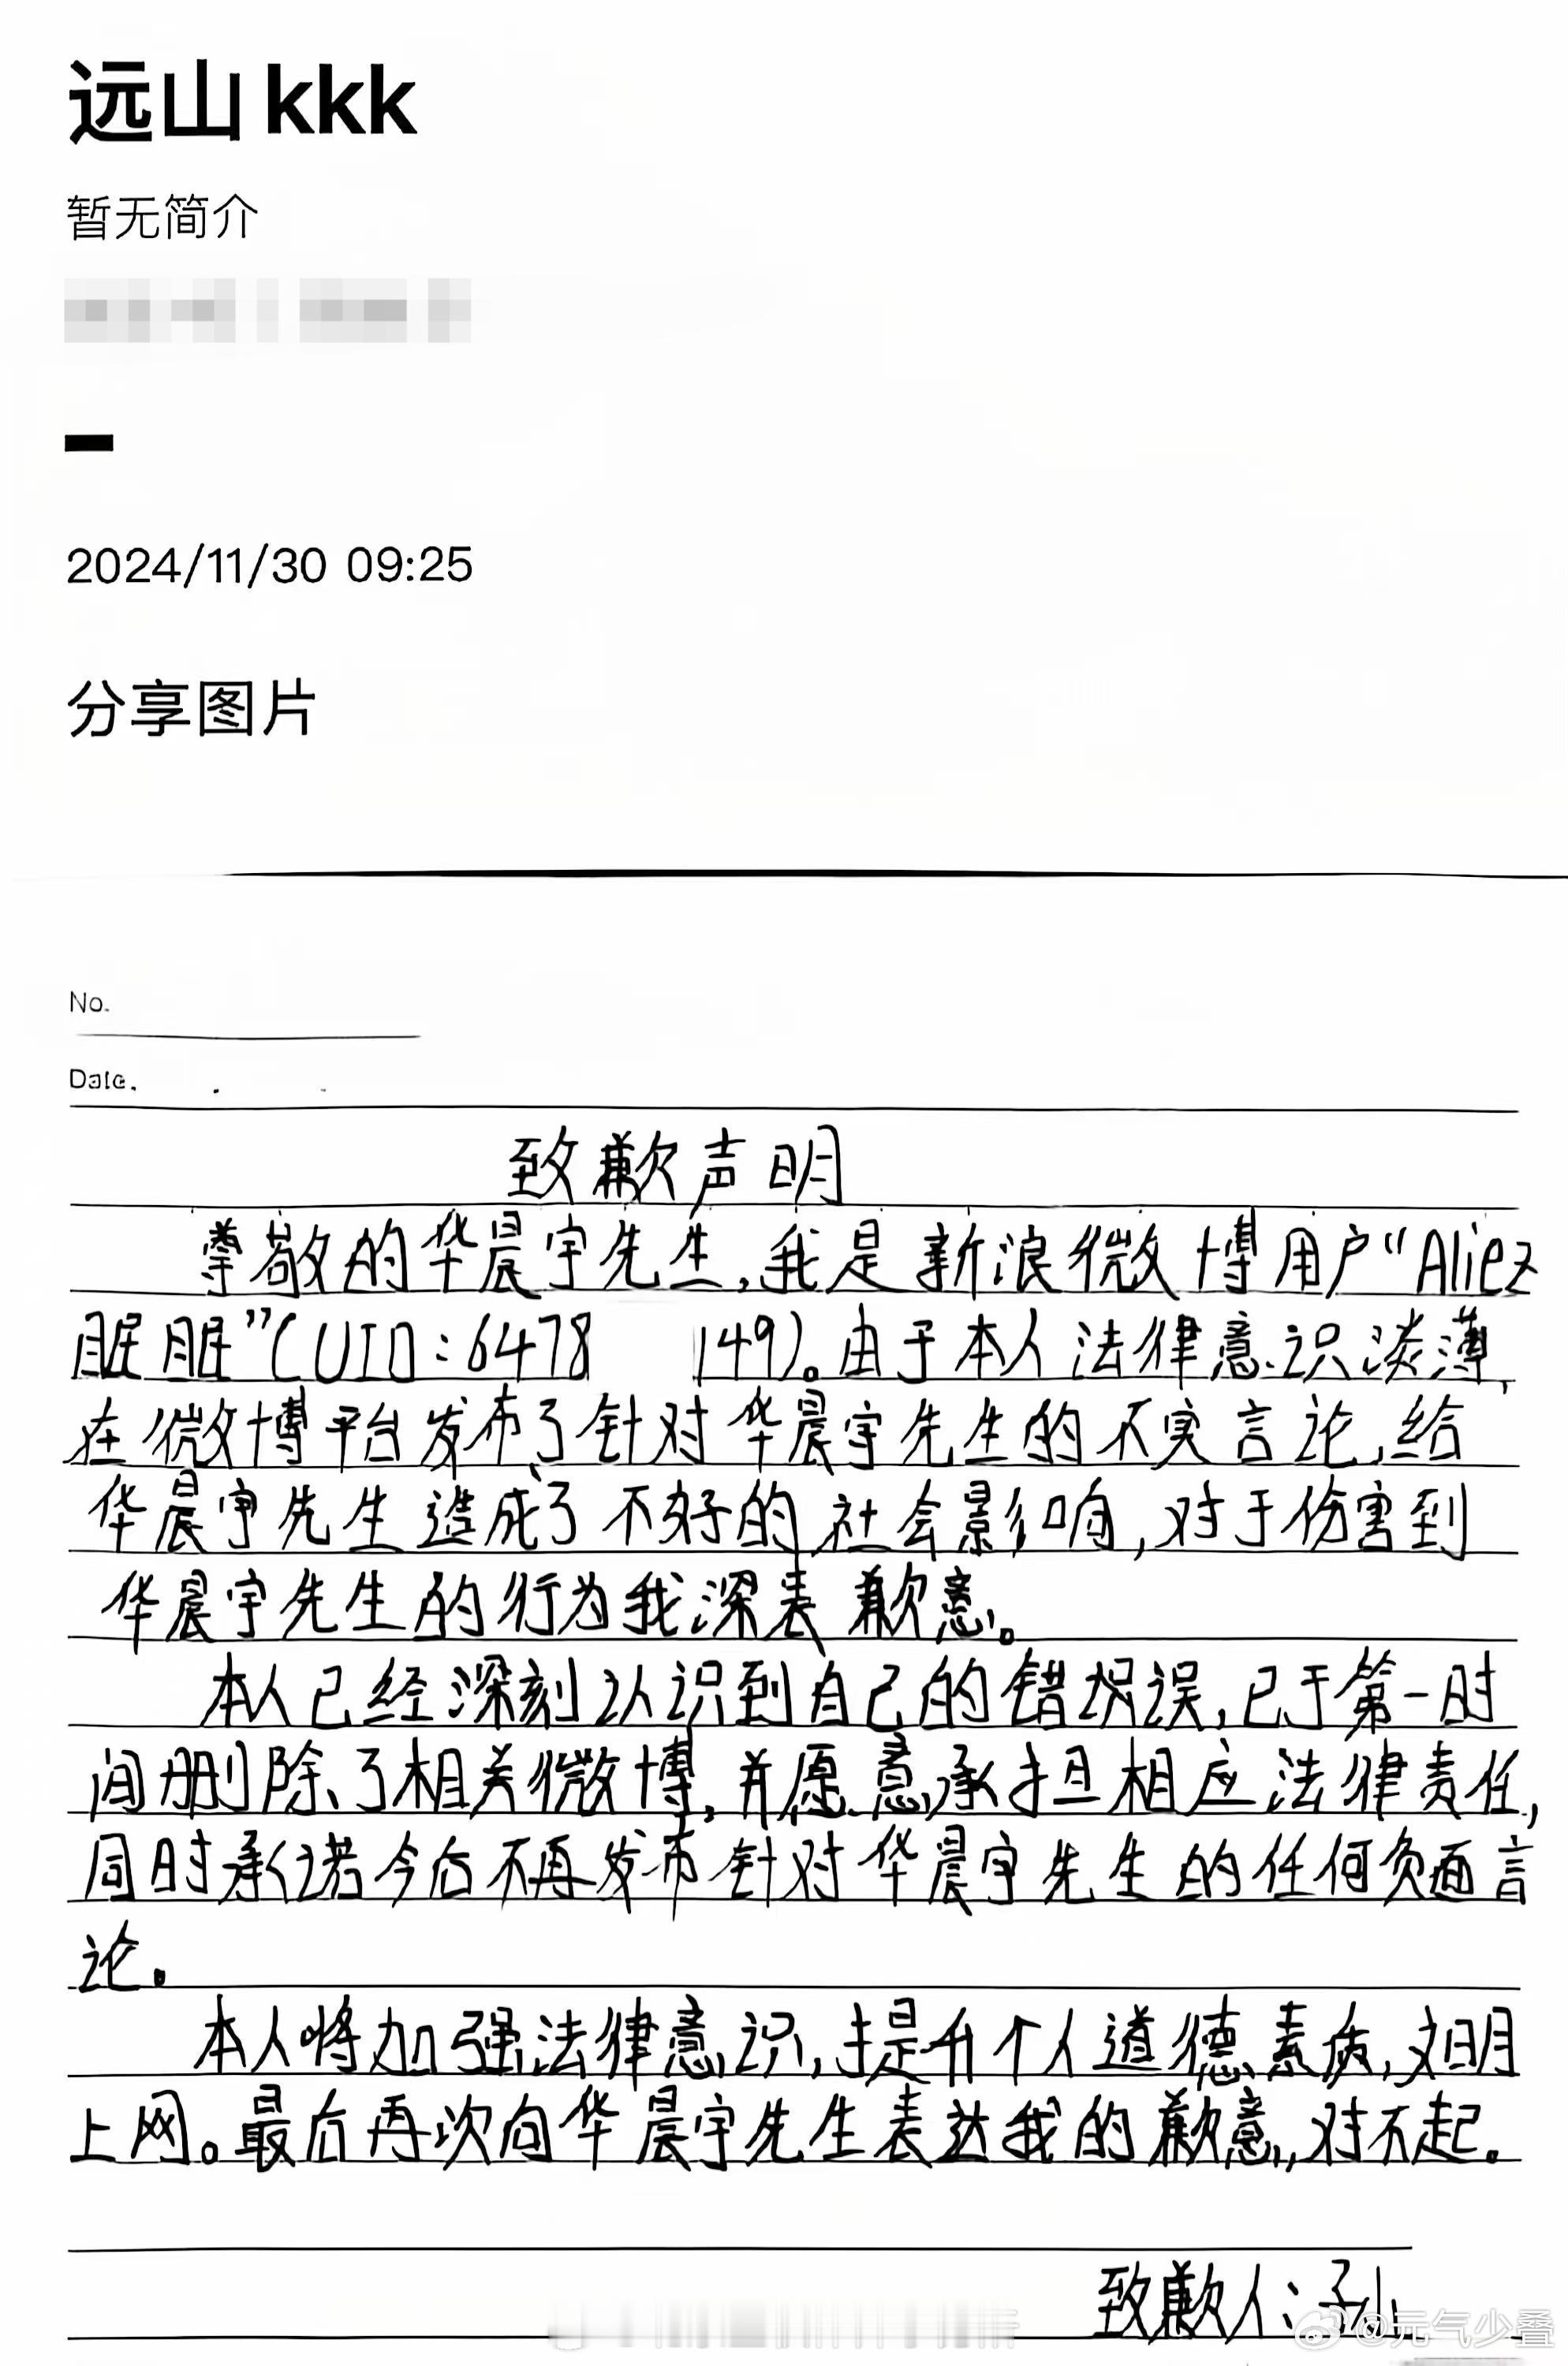 远山kkk
暂无简介
2024/11/30 09:25
分享图片
No.
Date.
致歉声明
尊敬的华晨宇先生,我是新浪微博用户“Aliez
眠眠”(UID:6478 149)。由于本人法律意识淡薄,
在微博平台发布了针对华晨宇先生的不实言论,给
华晨宇先生造成了不好的社会影响,对于伤害到
华晨宇先生的行为我深表歉意。
本人已经深刻认识到自己的错误,已于第一时
间删除了相关微博,并愿意承担相应法律责任,
同时承诺今后不再发布针对华晨宇先生的任何负面言
论。
本人将加强法律意识,提升个人道德素质,文明
上网。最后再次向华晨宇先生表达我的歉意,对不起。
致歉人:孙
@元气少叠